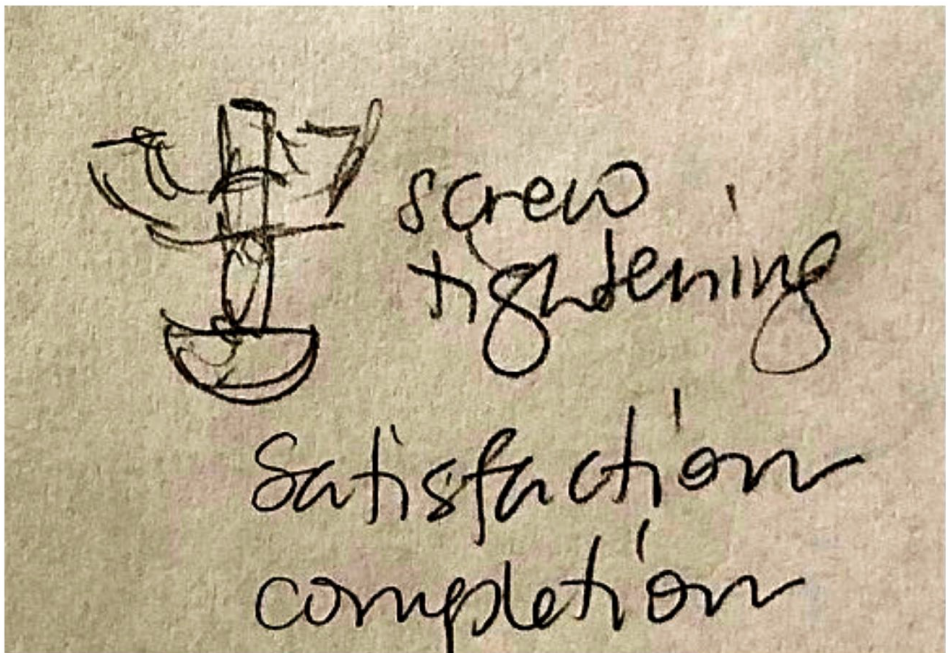 screw
tightening
Satisfaction
completion